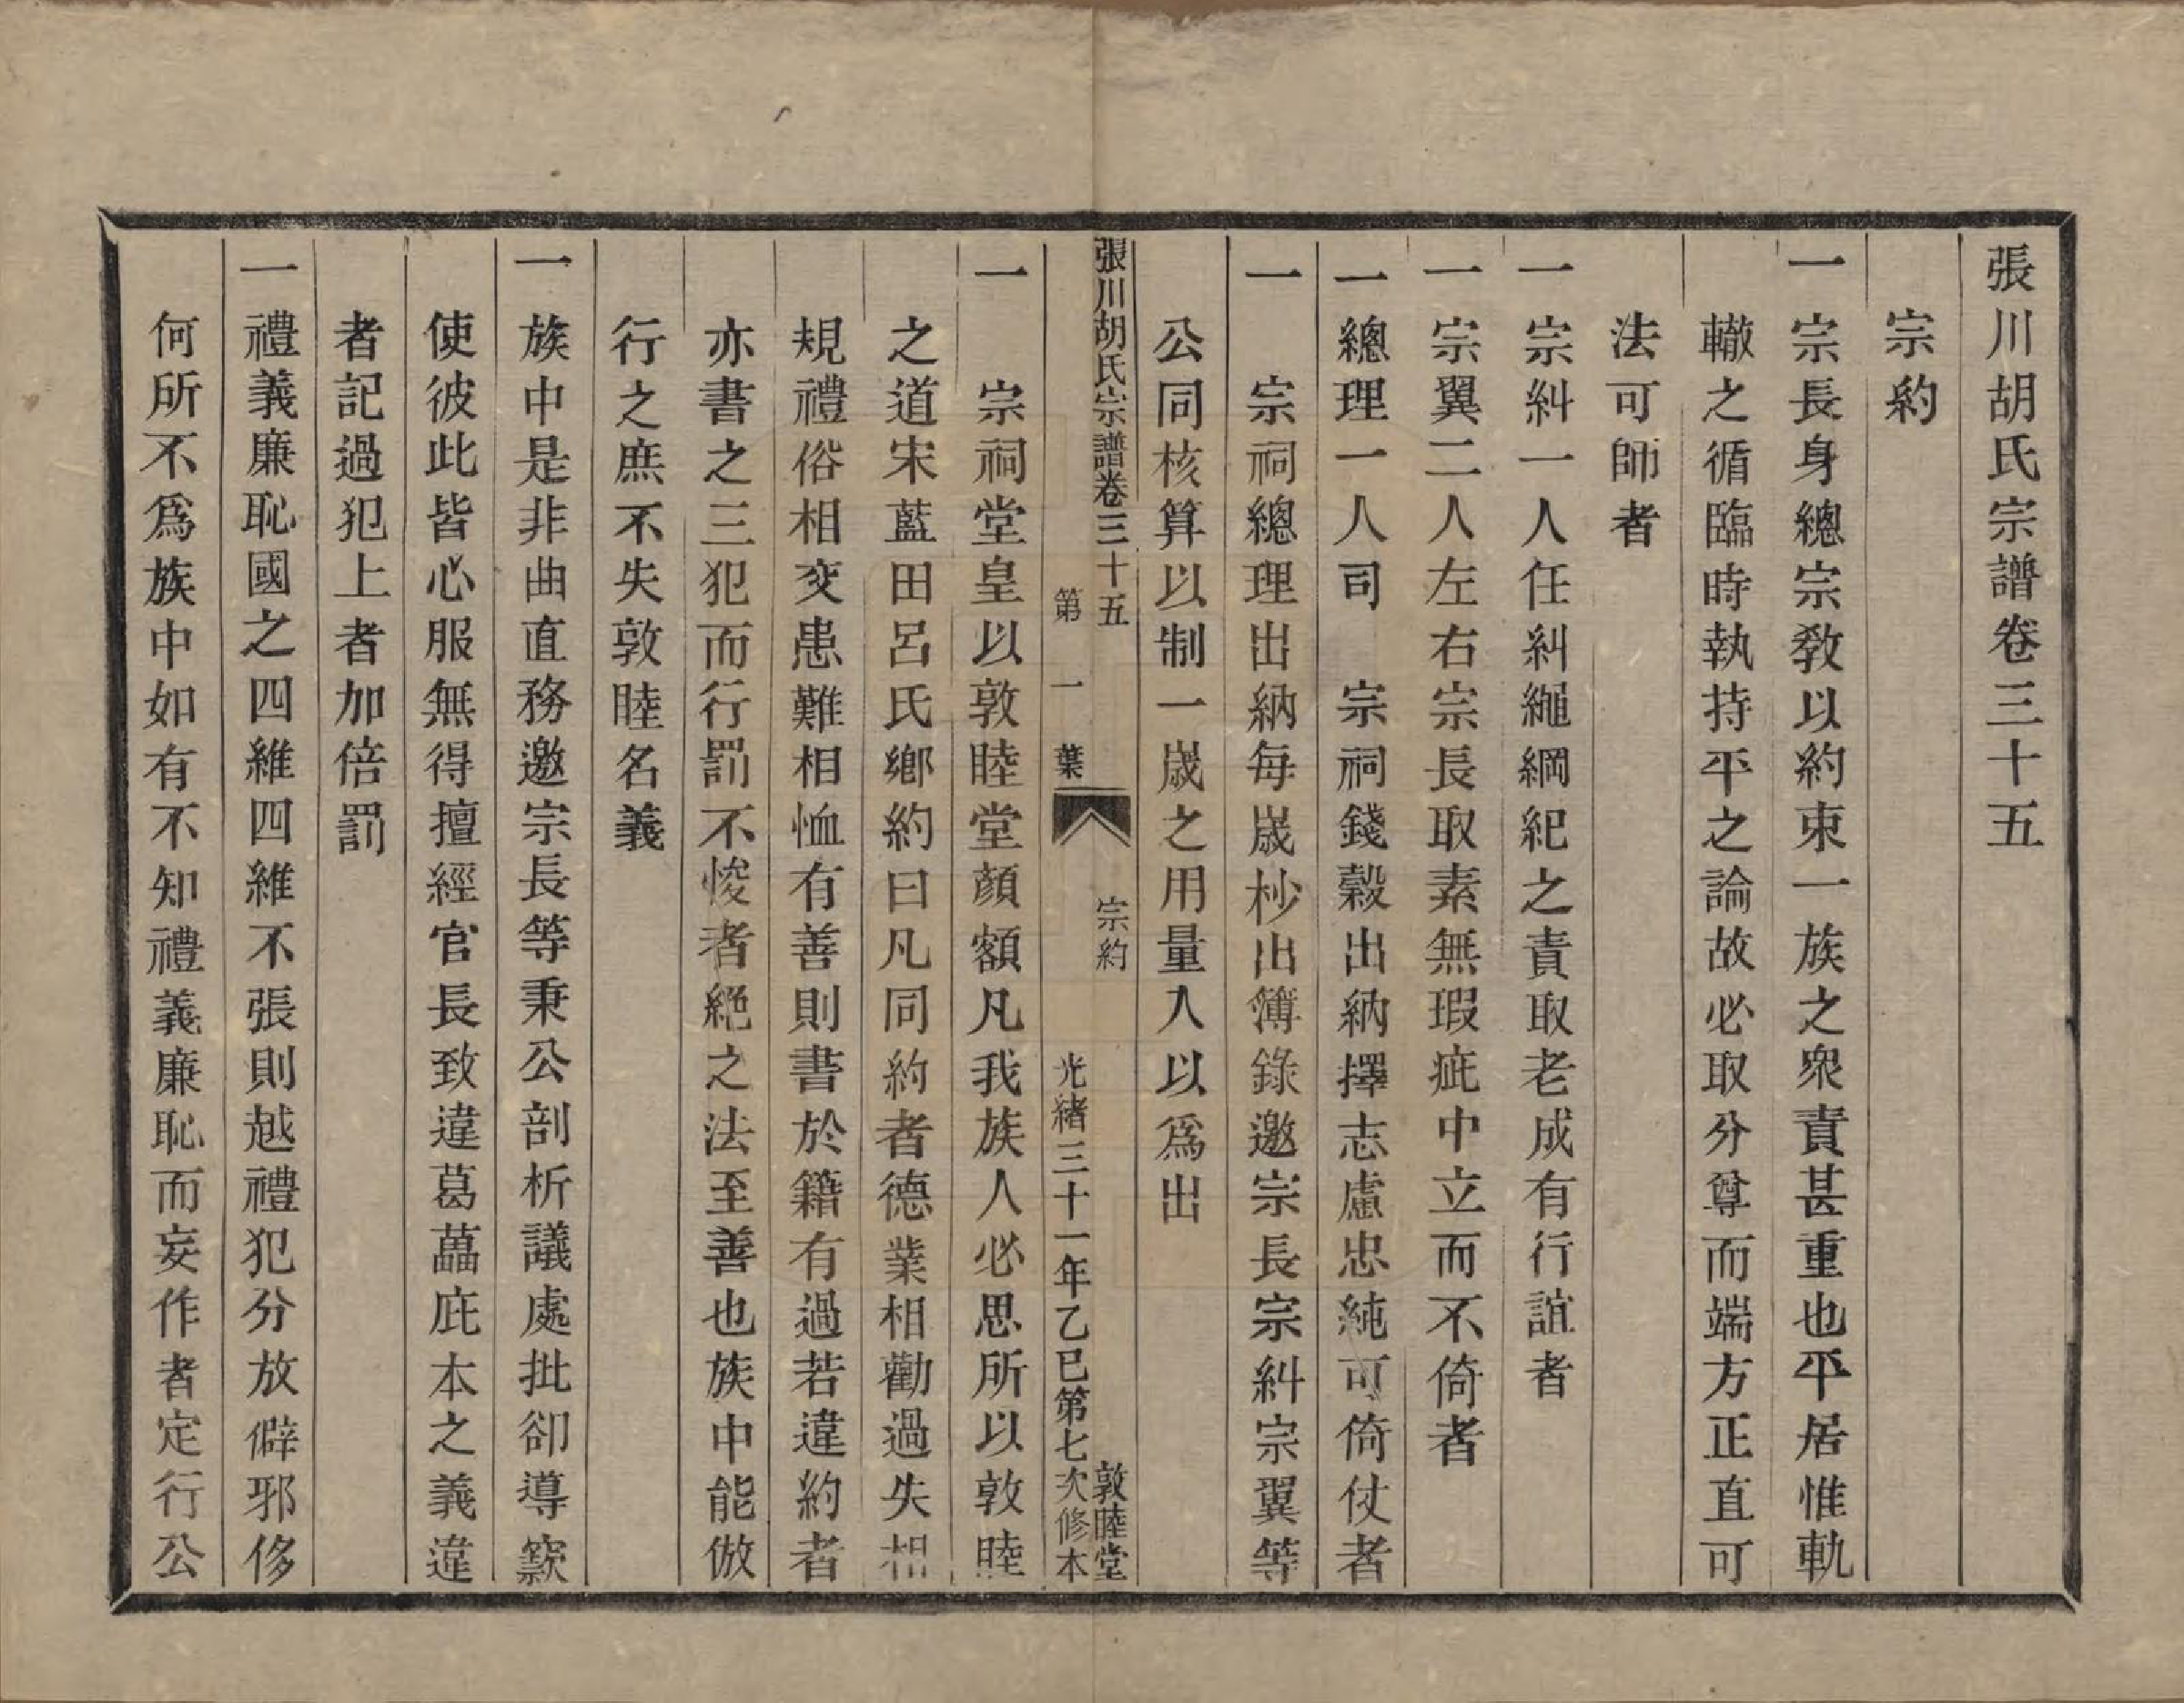 張川胡氏宗譜卷三十五
宗約
一宗長身總宗教以約束一族之衆責甚重也平居惟軌
轍之循臨時執持平之論故必取分尊而端方正直可
法可師者
一宗糾一人任糾繩綱紀之責取老成有行誼者
一宗翼二人左右宗長取素無瑕疵中立而不倚者
一總理一人司　宗祠錢穀出納擇志慮忠純可倚仗者
一　宗祠總理出納每歲杪出簿錄邀宗長宗糾宗翼等
公同核算以制一歲之用量入以爲出
張川胡氏宗譜卷三十五　宗約　敦睦堂
第一葉　光緒三十一年乙巳第七次修本
一　宗祠堂皇以敦睦堂顏額凡我族人必思所以敦睦
之道宋藍田呂氏鄉約曰凡同約者德業相勸過失相
規禮俗相交患難相恤有善則書於籍有過若違約者
亦書之三犯而行罰不悛者絕之法至善也族中能倣
行之庶不失敦睦名義
一族中是非曲直務邀宗長等秉公剖析議處批卻導窾
使彼此皆心服無得擅經官長致違葛藟庇本之義違
者記過犯上者加倍罰
一禮義廉恥國之四維四維不張則越禮犯分放僻邪侈
何所不爲族中如有不知禮義廉恥而妄作者定行公